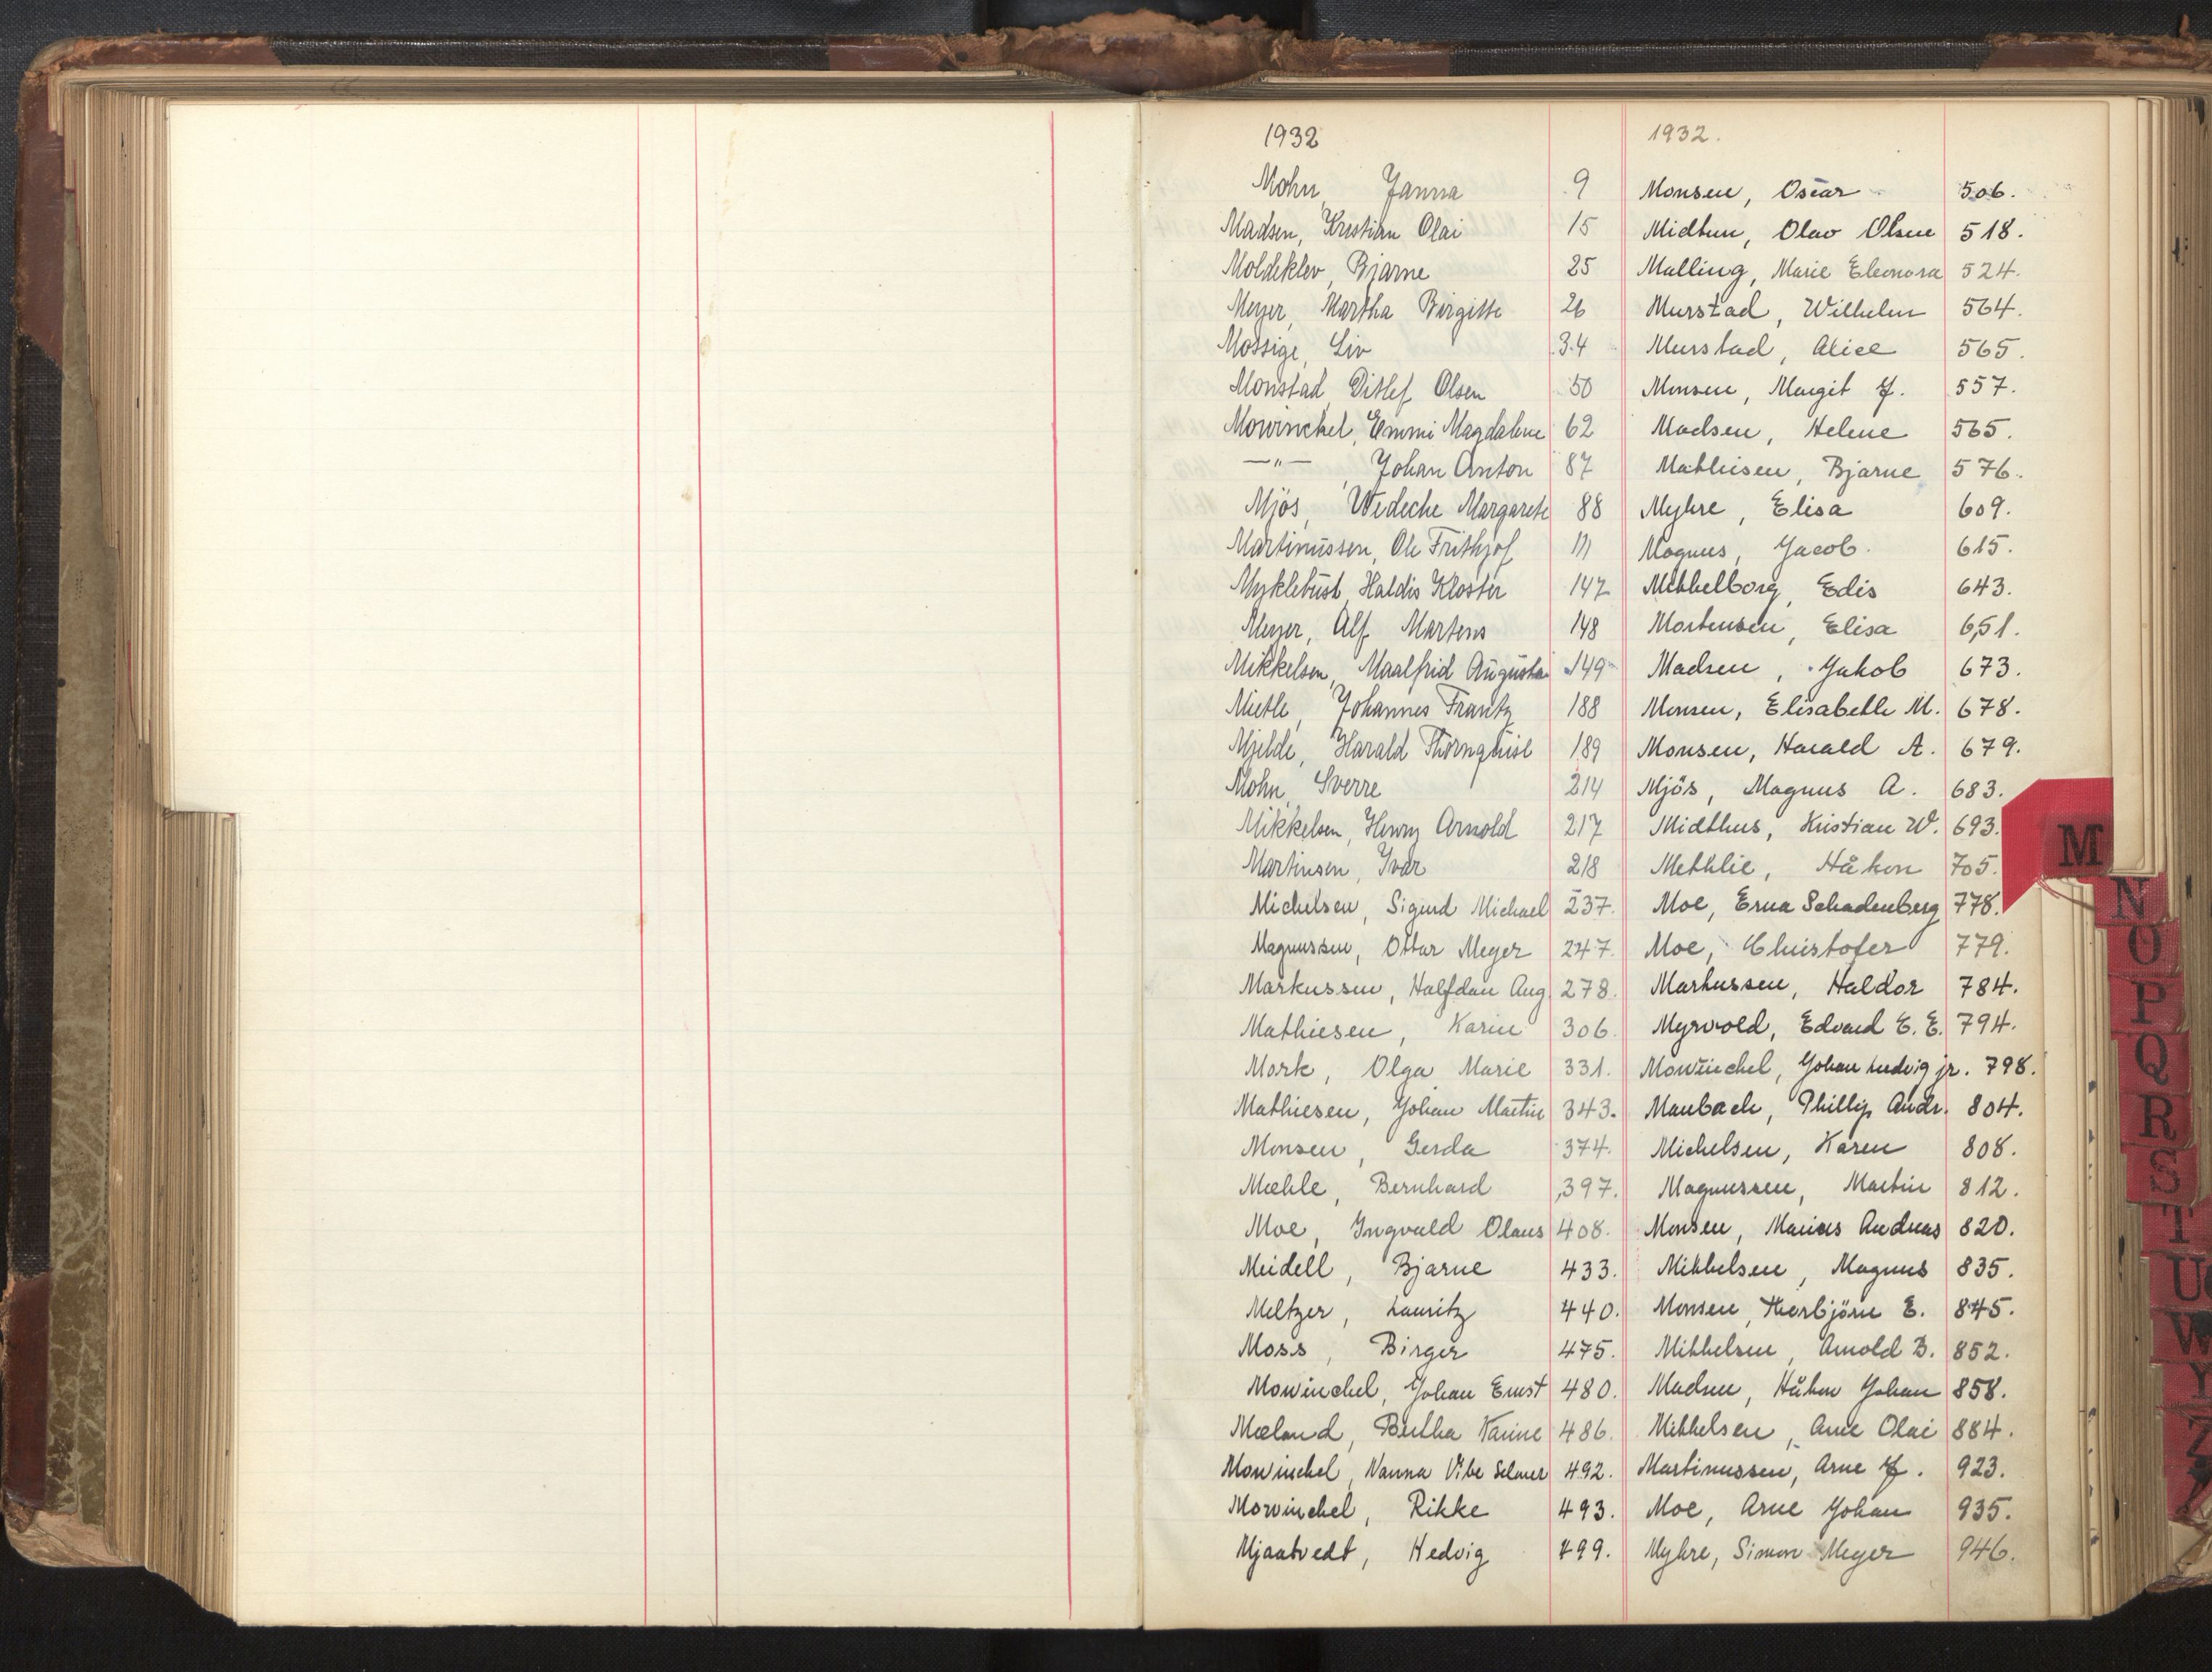 1932
Mohn, Janna 9
Madsen, Kristian Olai 15
Moldeklev, Bjarne 25
Meyer, Martha Birgitte 26
Mossige, Liv 34
Monstad, Ditlef Olsen 50
Mowinckel, Emmi Magdalene 62
—"— , Johan Anton 87
Mjös, Wedeche Margarete 88
Martinussen, Ole Frithjof 111
Myklebust, Haldis Kloster 147
Meyer, Alf Martens 148
Mikkelsen, Maalfrid Augusta 149
Mietle, Johannes Frantz 188
Mjelde, Harald Thornquist 189
Mohn, Sverre 214
Mikkelsen, Henry Arnold 217
Martinsen, Ivar 218
Michelsen, Sigurd Michael 237.
Magnussen, Ottar Meyer 247.
Markussen, Halfdan Aug. 278.
Mathiesen, Karin 306.
Mork, Olga Marie 331.
Mathiesen, Johan Martin 343.
Monsen, Gerda 374.
Mæhle, Bernhard 397.
Moe, Ingvald Olaus 408.
Meidell, Bjarne 433.
Meltzer, Lauritz 440.
Moss, Birger 475.
Mowinckel, Johan Ernst 480.
Mæland, Bertha Karine 486.
Mowinckel, Nanna Vibe Selmer 492.
Mowinckel, Rikke 493.
Mjaatvedt, Hedvig 499.
1932.
Monsen, Oscar 506.
Midtun, Olav Olsen 518.
Malling, Marie Eleonora 524.
Murstad, Wilhelm 564.
Murstad, Alice 565.
Monsen, Margit J. 557.
Madsen, Helene 565.
Mathiesen, Bjarne 576.
Myhre, Elisa 609.
Magnus, Jacob. 615.
Mikkelborg, Edis 643.
Mortensen, Elisa 651.
Madsen, Jakob 673.
Monsen, Elisabeth M. 678.
Monsen, Harald A. 679.
Mjös, Magnus A. 683.
Midthus, Kristian W. 693.
Methlie, Håkon 705.
Moe, Erna Schadenberg 778.
Moe, Christofer 779.
Markussen, Haldor 784.
Myrvold, Edvard E. E. 794.
Mowinckel, Johan Ludvig jr. 798.
Maubach, Phillip Andr. 804.
Michelsen, Karen 808.
Magnussen, Martin 812.
Monsen, Marius Andreas 820.
Mikkelsen, Magnus 835.
Monsen, Thorbjörn E. 845.
Mikkelsen, Arnold B. 852.
Madsen, Håkon Johan 858.
Mikkelsen, Arne Olai 884.
Martinussen, Arne J. 923.
Moe, Arne Johan 935.
Myhre, Simon Meyer 946.
M
N
O
P
Q
R
S
T
U
W
Y
Z